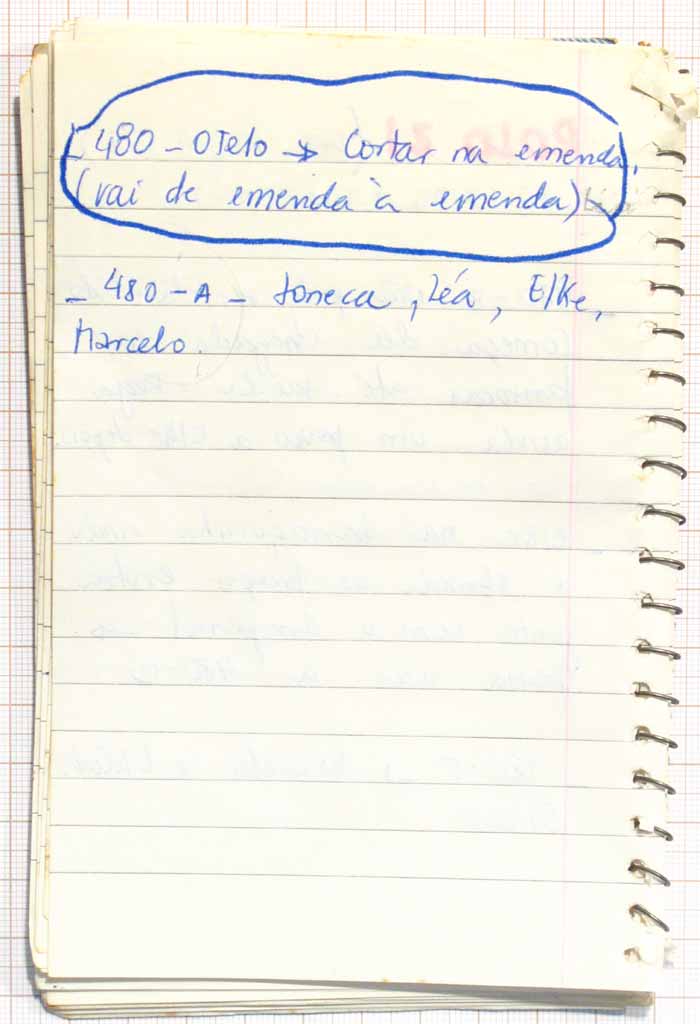 - 480 - Otelo → Cortar na emenda,
(vai de emenda à emenda)
- 480 - A - Joneca, Léa, Elke,
Marcelo.